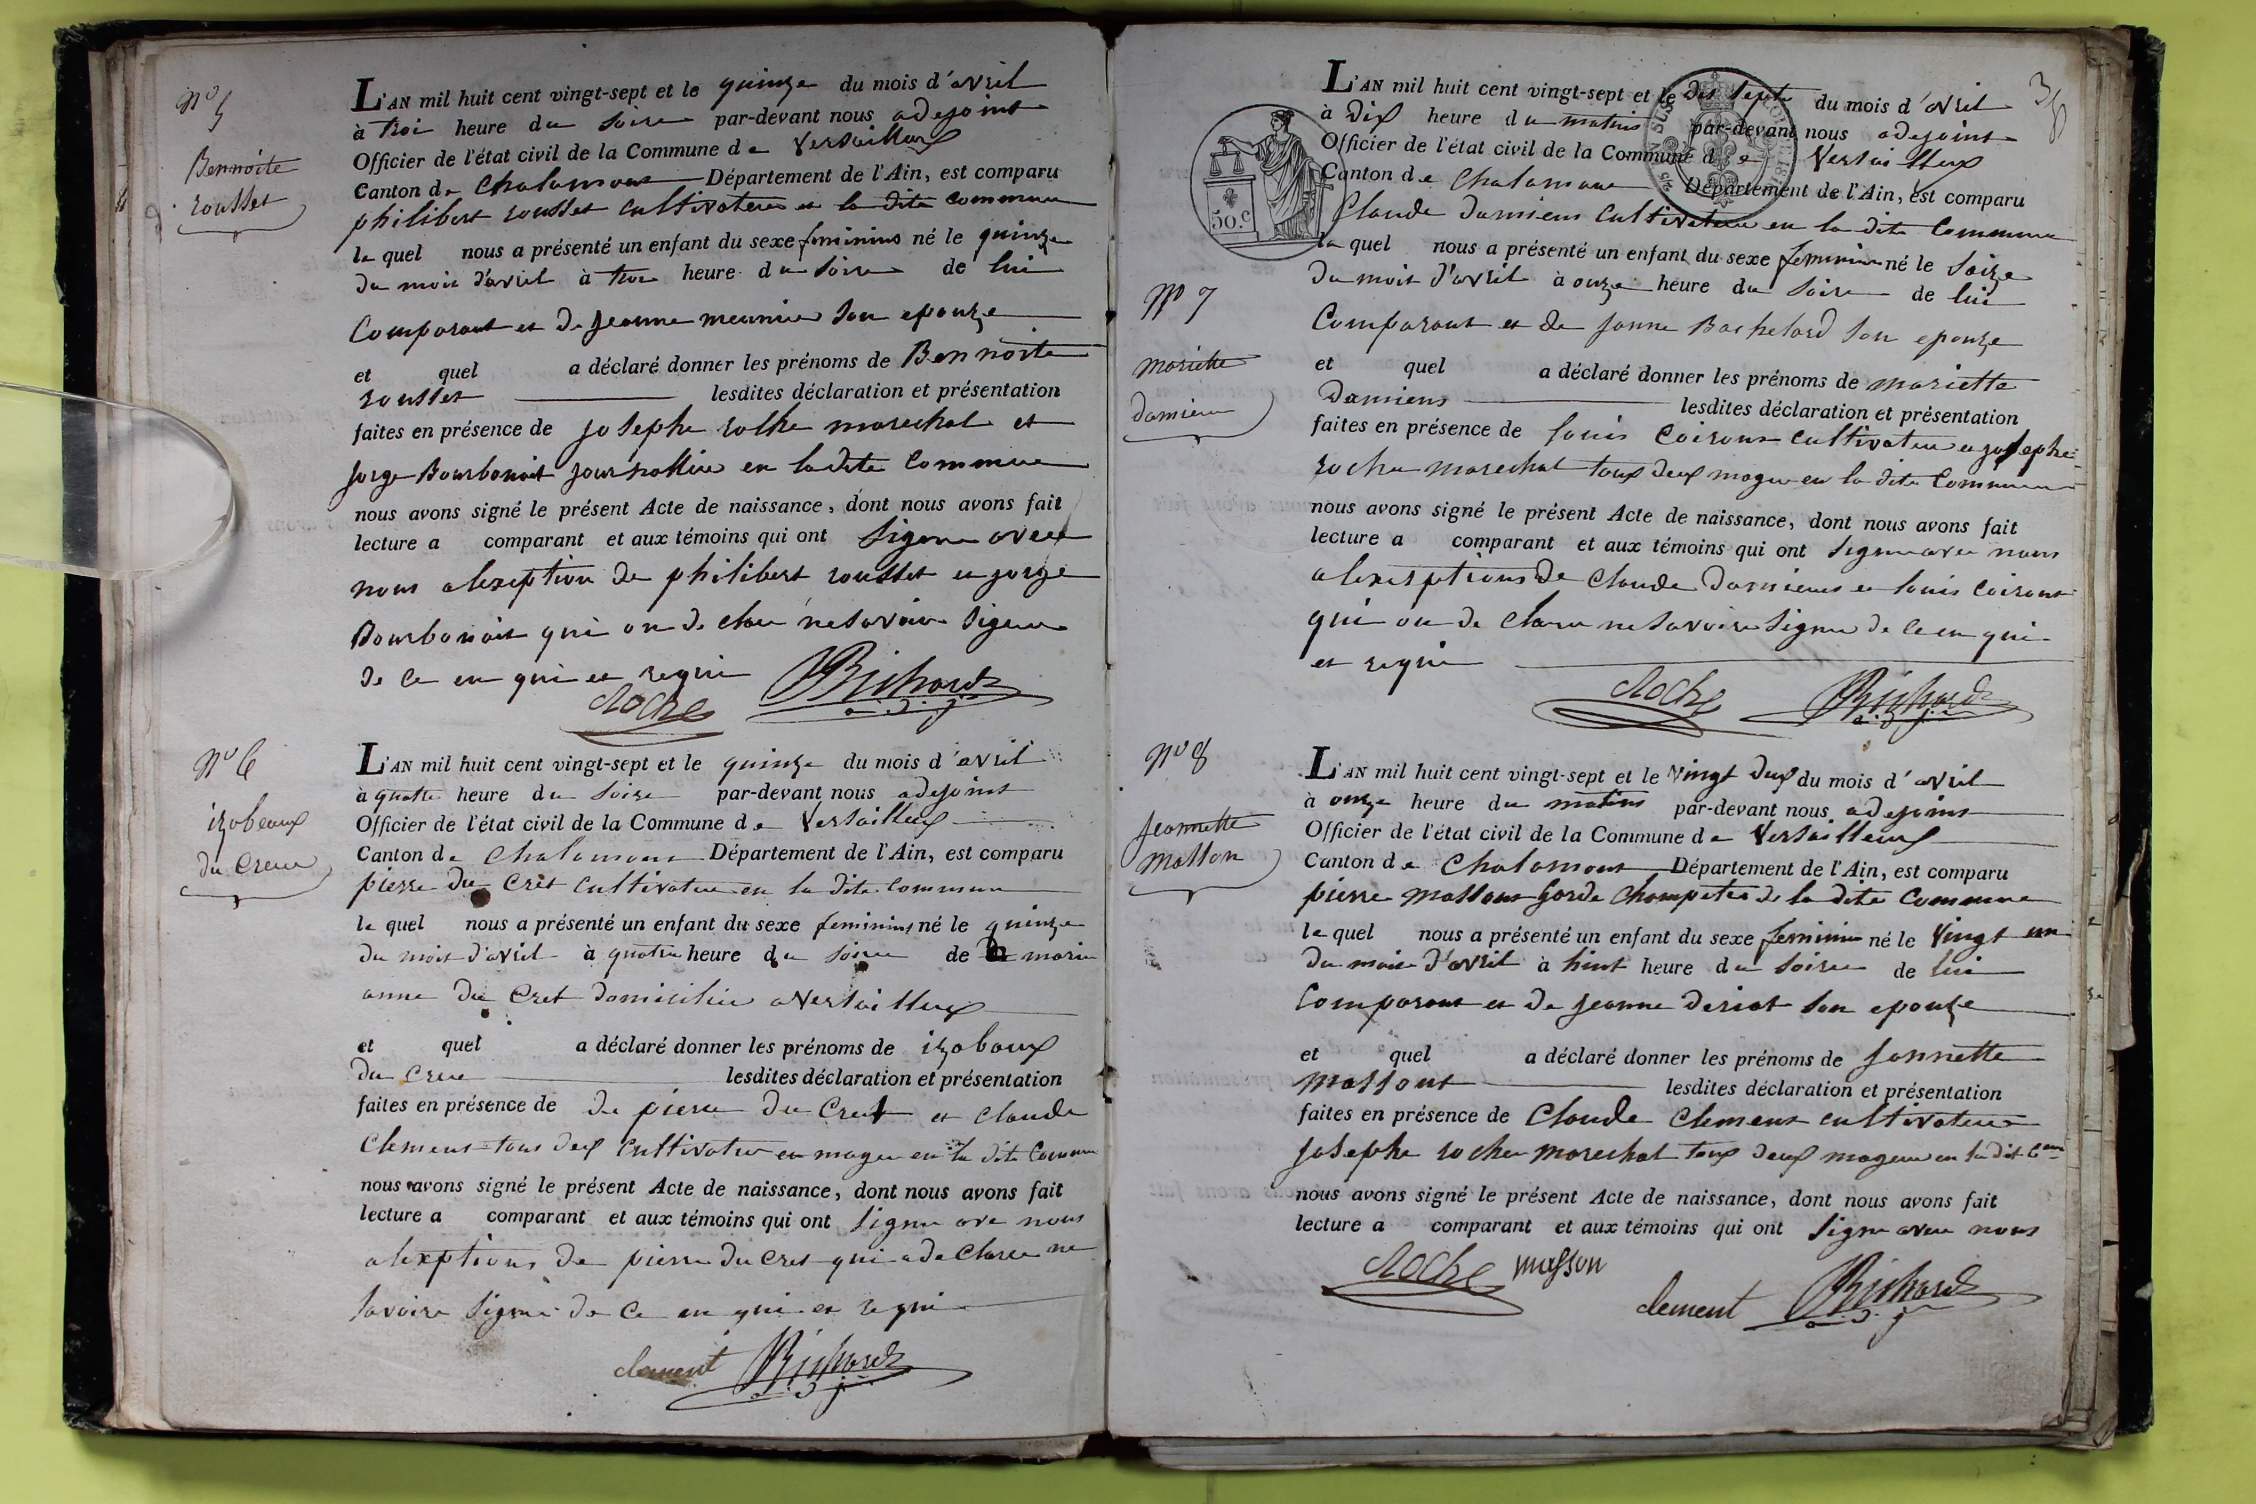 N° 5
Bennoite
rousset
L'AN mil huit cent vingt-sept et le quinze du mois d'avril
à troi heure du soire par-devant nous adejoint
Officier de l'état civil de la Commune de Versailleux
Canton de Chalamont Département de l'Ain, est comparu
philibert rousset cultivateur en la dite commune
le quel nous a présenté un enfant du sexe feminins né le quinze
du mois d'avril à troi heure du soire de lui
Comparant et de jeanne meunier son epouze
et quel a déclaré donner les prénoms de Bennoite
rousset lesdites déclaration et présentation
faites en présence de josephe rothe marechal et
jorge Bourbonoit journallier en la dite Commune
nous avons signé le présent Acte de naissance, dont nous avons fait
lecture a comparant et aux témoins qui ont signe avec
nous alexeption de philibert rousset et jorge
Bourbonoit qui on de claré ne savoir signer
de ce en qui et requi
Roche Richard
a.d.j.
N° 6
izabeaux
du Creue
L'AN mil huit cent vingt-sept et le quinze du mois d'avril
à quatre heure du soire par-devant nous adejoint
Officier de l'état civil de la Commune de Versailleux
Canton de Chalamont Département de l'Ain, est comparu
pierre du Cret cultivateur en la dite commune
le quel nous a présenté un enfant du sexe feminins né le quinze
du mois d'avril à quatre heure du soire de marie
anne du Cret domicilié a Versailleux
et quel a déclaré donner les prénoms de izabaux
du creue lesdites déclaration et présentation
faites en présence de de pierre du Cret et claude
Clement tous deux cultivateur en mageu en la dite Commune
nous avons signé le présent Acte de naissance, dont nous avons fait
lecture a comparant et aux témoins qui ont signe ave nous
alexptions de pierre du Cret qui a de Claree ne
savoire signe de ce en qui et requi
clement Richard
a.d.j.
38
L'AN mil huit cent vingt-sept et le dis septe du mois d'avril
à Dix heure du matins par-devant nous adejoint
Officier de l'état civil de la Commune de Versailleux
Canton de Chalamont Département de l'Ain, est comparu
50.C
Claude Damiens Cultivateur en la dite Commune
le quel nous a présenté un enfant du sexe feminin né le saize
du mois d'avril à onze heure du soire de lui
Comparant et de janne Bachelard son epouze
N° 7
mariette
damiens
et quel a déclaré donner les prénoms de mariette
Damiens lesdites déclaration et présentation
faites en présence de louis Coiront cultivateur et josephe
roche marechal toux deux mageu en la dite Commune
nous avons signé le présent Acte de naissance, dont nous avons fait
lecture a comparant et aux témoins qui ont signe avec nous
alexseptions de Claude Damiens et louis Coiront
qui on de Clare ne savoire signe de ce en qui
et requi
Roche Richard
a.d.j.
N° 8
Jeannette
Masson
L'AN mil huit cent vingt-sept et le Vingt deux du mois d'avril
à onze heure du matins par-devant nous adejoins
Officier de l'état civil de la Commune de Versailleux
Canton de Chalamont Département de l'Ain, est comparu
pierre Massont Garde Champetre de la dite Commune
le quel nous a présenté un enfant du sexe feminin né le Vingt un
du mois d'avril à huit heure du soire de lui
Comparant et de jeanne deriat son epouze
et quel a déclaré donner les prénoms de jannette
Massont lesdites déclaration et présentation
faites en présence de Claude Clement cultivateur
josephe roche marechal toux deux mageur en la dit Cne
nous avons signé le présent Acte de naissance, dont nous avons fait
lecture a comparant et aux témoins qui ont signe avec nous
Roche masson
clement Richard
a.d.j.